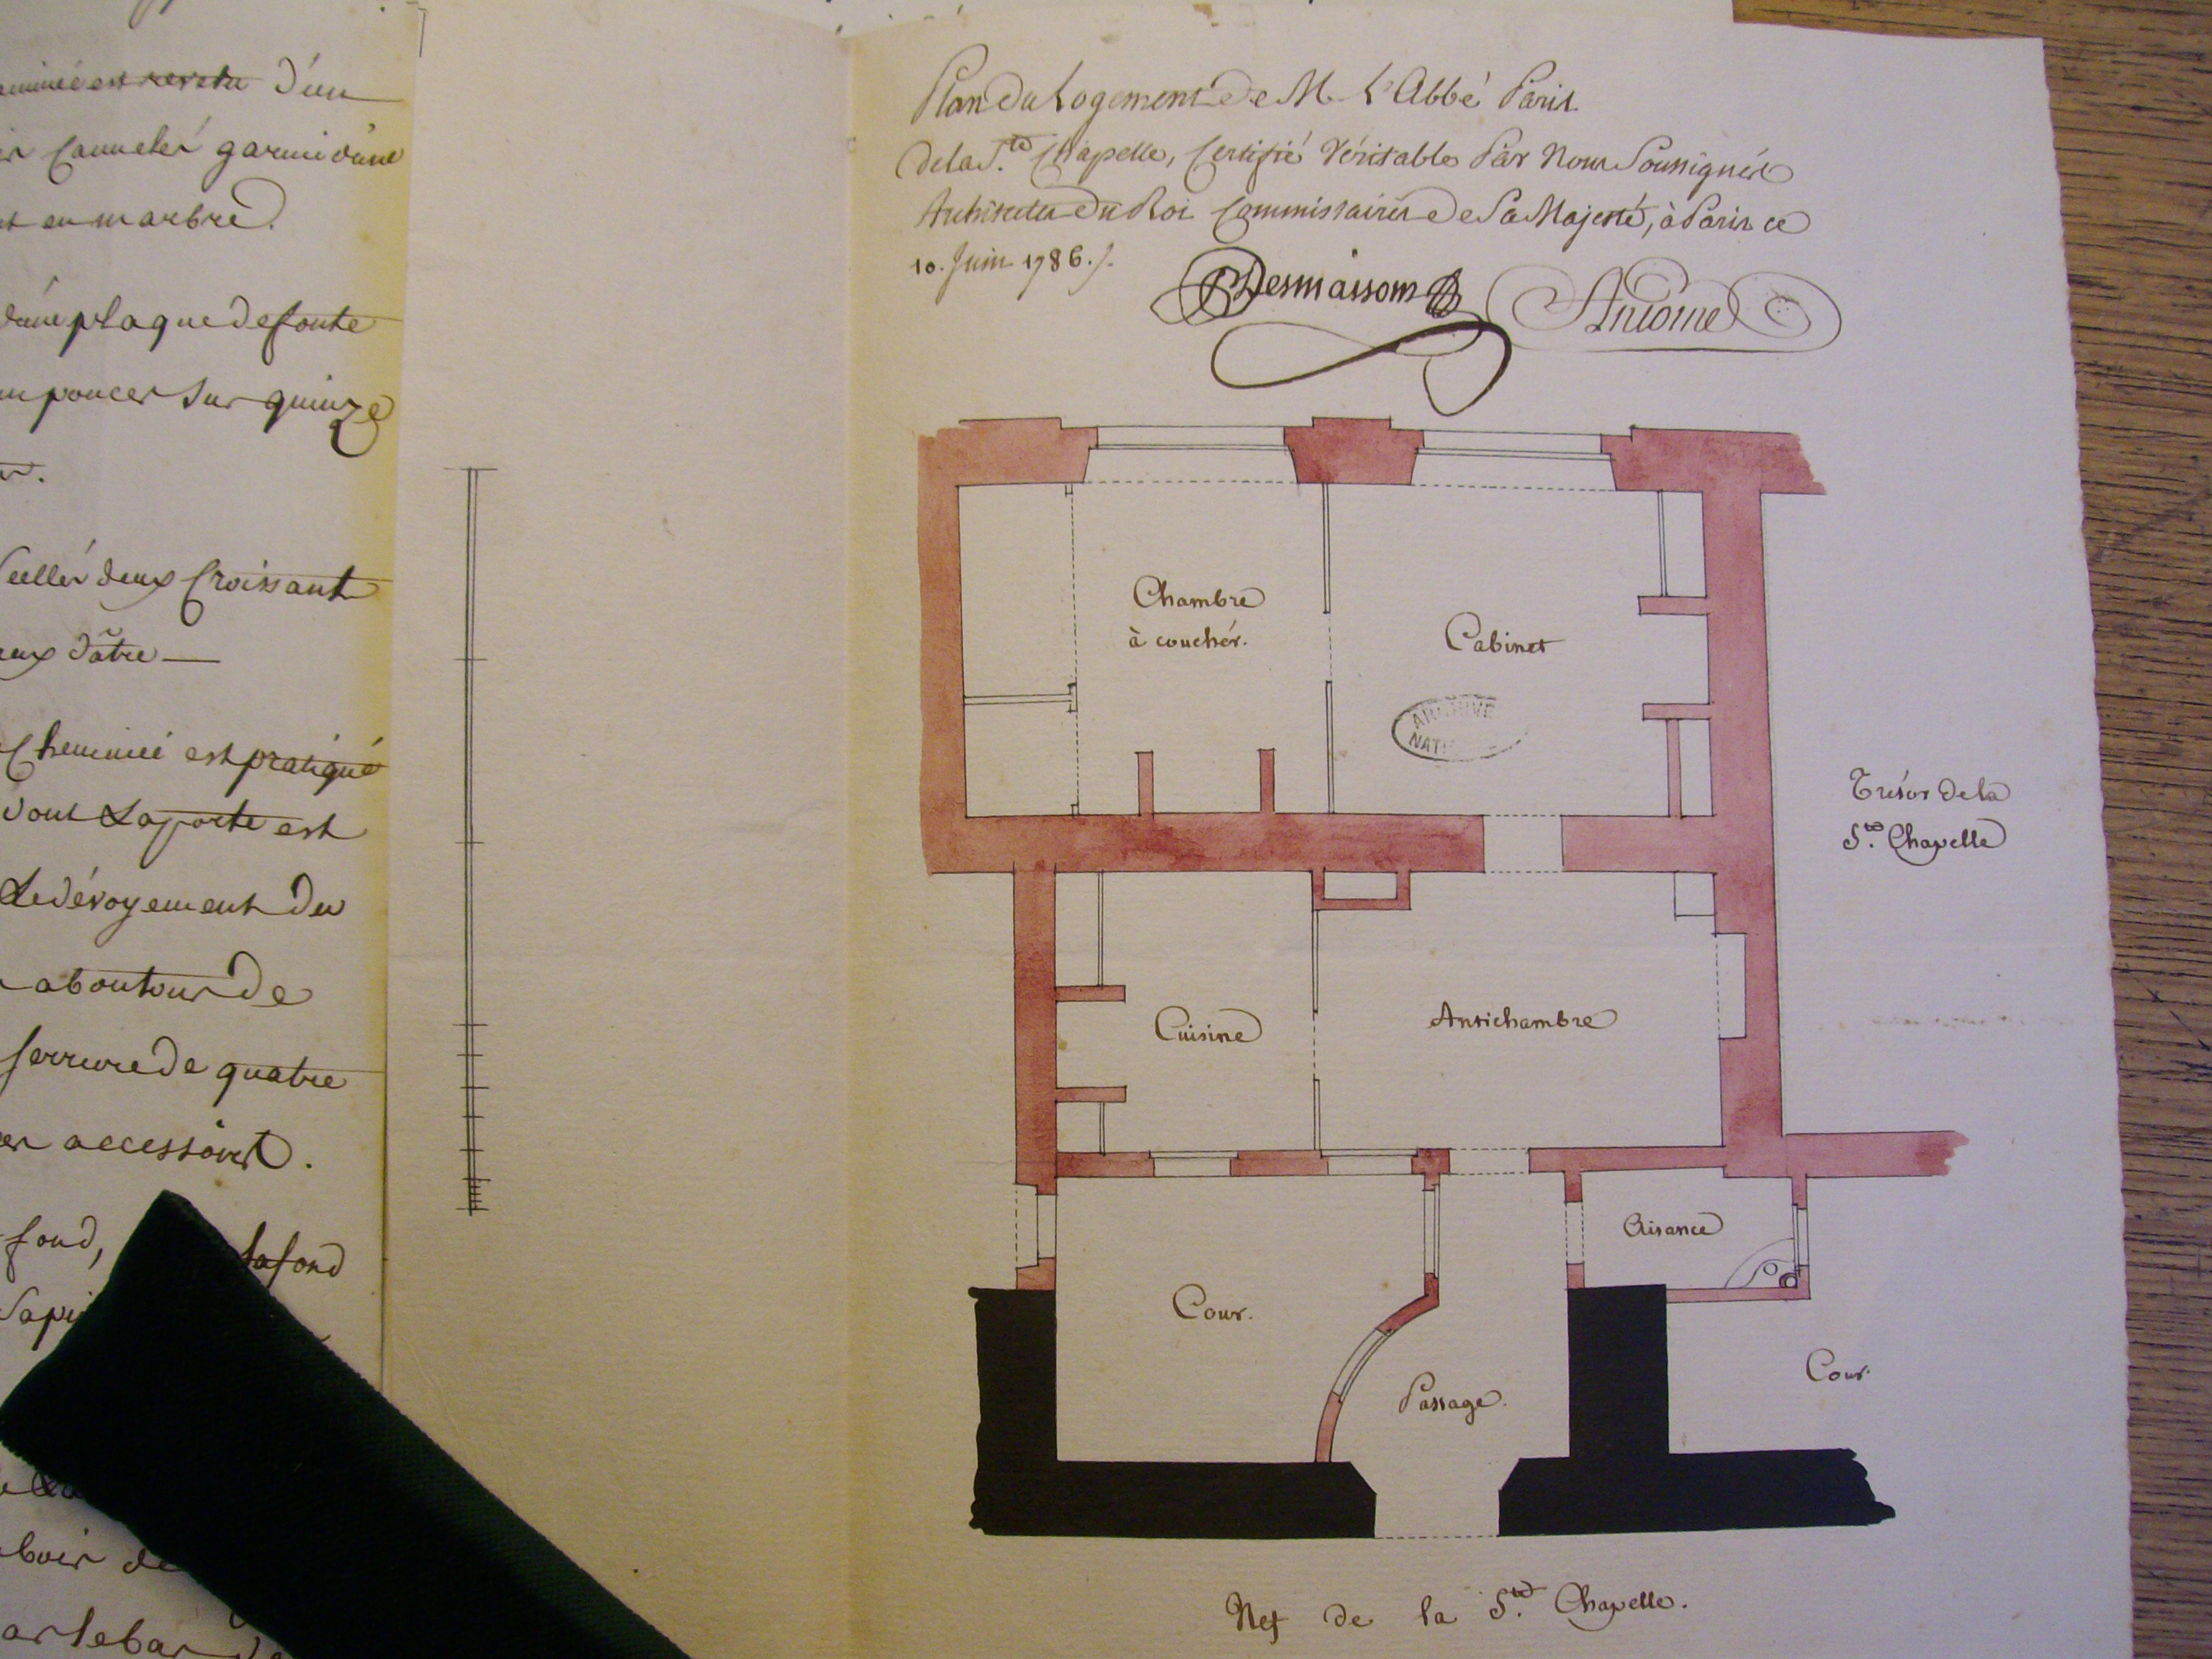 d'un
cannelés garni d'une
en marbre.
d'une plaque de fonte
pouces sur quinze
deux Croissant
d'âtre —
Cheminée est pratiqué
dont La porte est
Le dévoyement du
about our de
serrure de quatre
accessoires.
fond,
bois de
Plan du Logement de M. L'Abbé Paris
de la S.te Chapelle, Certifié Véritable Par Nous Soussignés
Architectes du Roi Commissaires de Sa Majesté, à Paris ce
10. Juin 1786./.
Desmaisons
Antoine
Chambre
à couchér.
Cabinet
ARCHIVE
NATI
Trésor de la
S.te Chapelle
Cuisine
Antichambre
Aisance
Cour.
Cour.
Passage.
Nef de la S.te Chapelle.